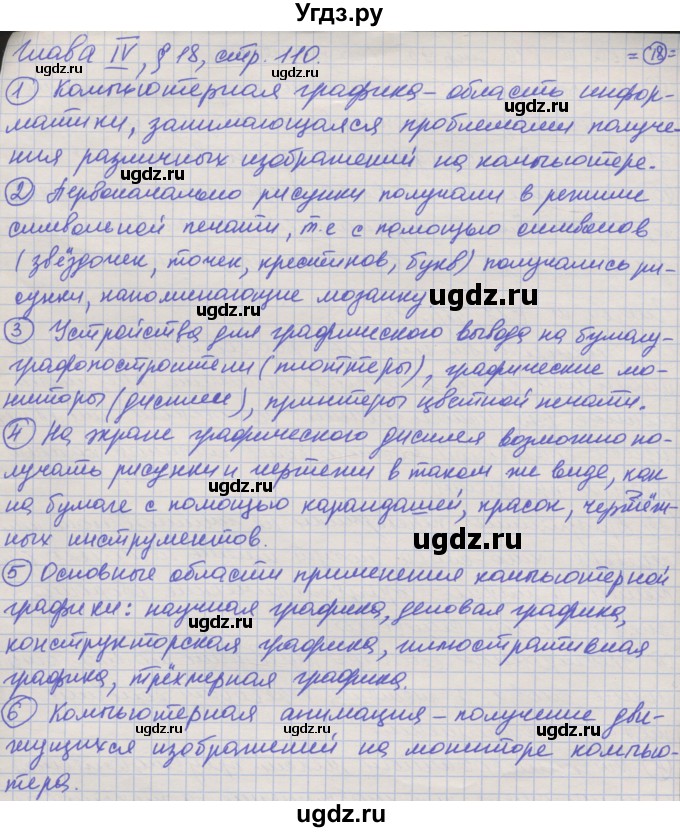 Угдз.ру
Глава IV, § 18, стр. 110. =18=
ugdz.ru ugdz.ru
① Компьютерная графика – область инфор-
матики, занимающаяся проблемами получе-
ния различных изображений на компьютере.
ugdz.ru ugdz.ru
② Первоначально рисунки получали в режиме
символьной печати, т.е с помощью символов
(звёздочек, точек, крестиков, букв) получались ри-
сунки, напоминающие мозаику
ugdz.ru
③ Устройства для графического вывода на бумагу-
графопостроители (плоттеры), графические мо-
ниторы (дисплеи), принтеры цветной печати.
ugdz.ru ugdz.ru
④ На экране графического дисплея возможно по-
лучать рисунки и чертежи в таком же виде, как
на бумаге с помощью карандашей, красок, чертёж-
ных инструментов.
ugdz.ru
⑤ Основные области применения компьютерной
графики: научная графика, деловая графика,
ugdz.ru ugdz.ru
конструкторская графика, иллюстративная
графика, трёхмерная графика.
⑥ Компьютерная анимация – получение дви-
жущихся изображений на мониторе компью-
тера.
ugdz.ru ugdz.ru
ugdz.ru